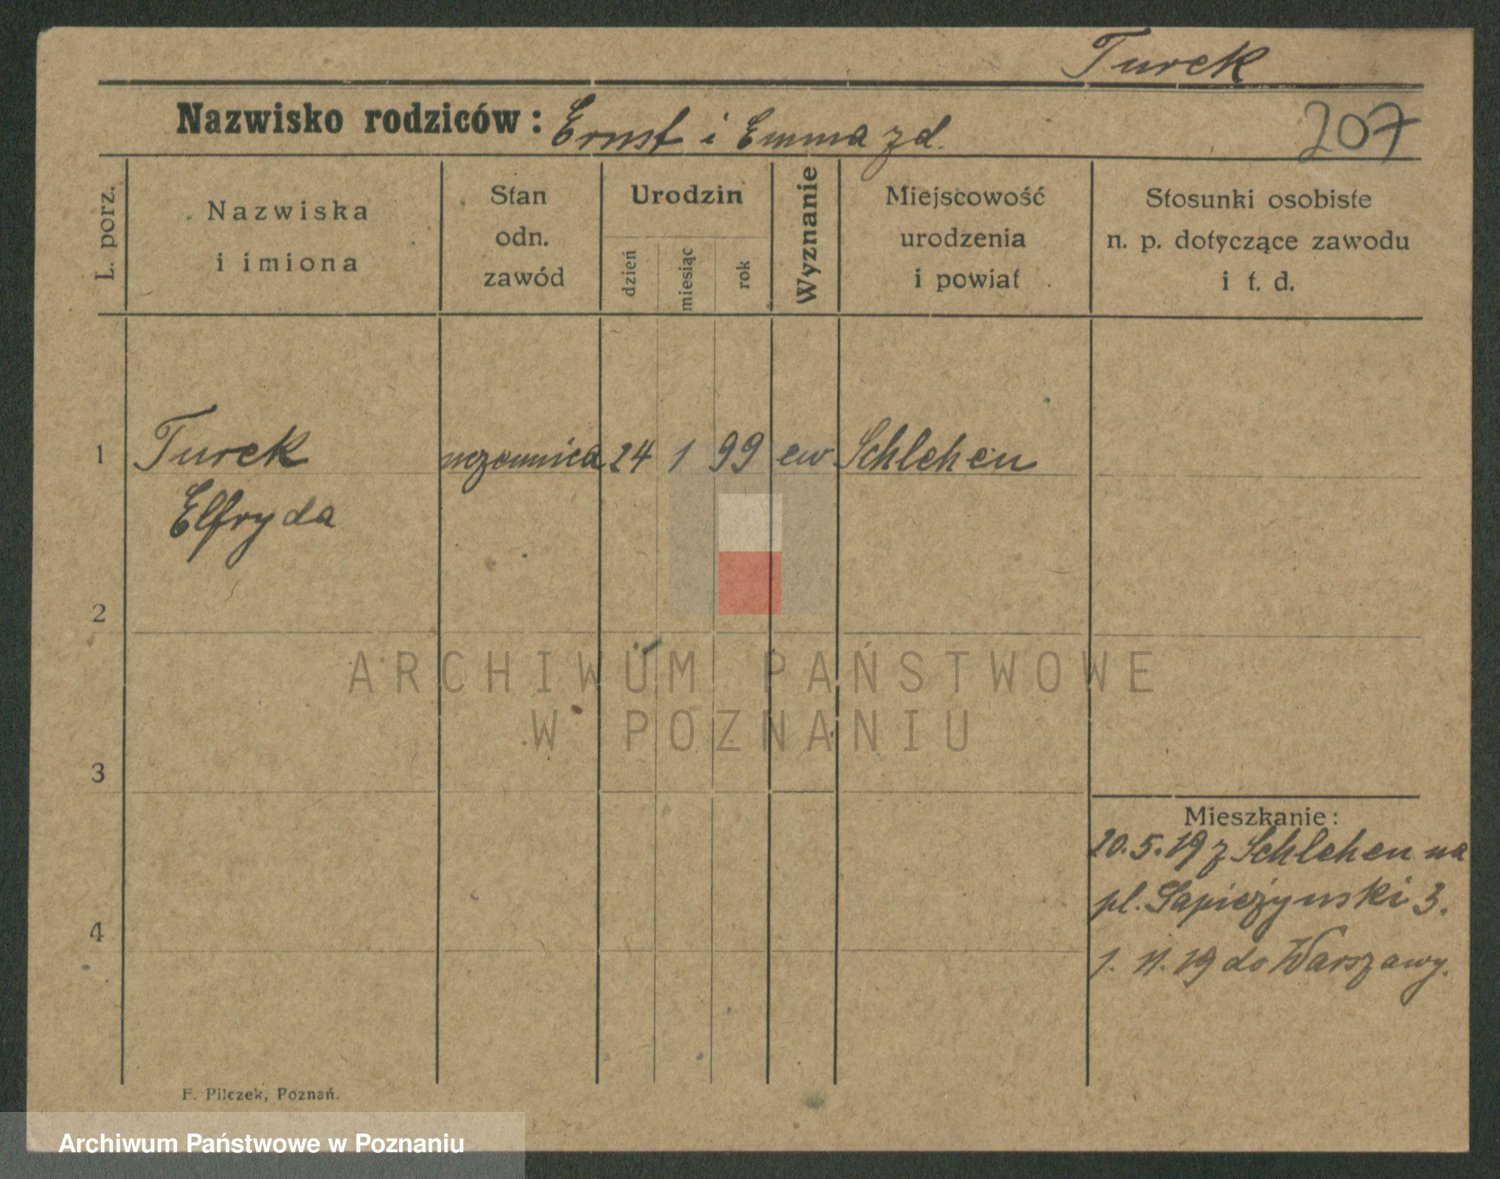 Turek
Nazwisko rodziców: Ernst i Emma zd.
207
L. porz.
Nazwiska
i imiona
Stan
odn.
zawód
Urodzin
dzień
miesiąc
rok
Wyznanie
Miejscowość
urodzenia
i powiat
Stosunki osobiste
n. p. dotyczące zawodu
i t. d.
1 Turek uczennica 24 1 99 ew Schlehen
Elfryda
2
ARCHIWUM PAŃSTWOWE
W POZNANIU
3
Mieszkanie:
20.5.19 z Schlehen na
pl. Sapieżyński 3.
4
1. 11. 19 do Warszawy.
F. Pilczek, Poznań.
Archiwum Państwowe w Poznaniu